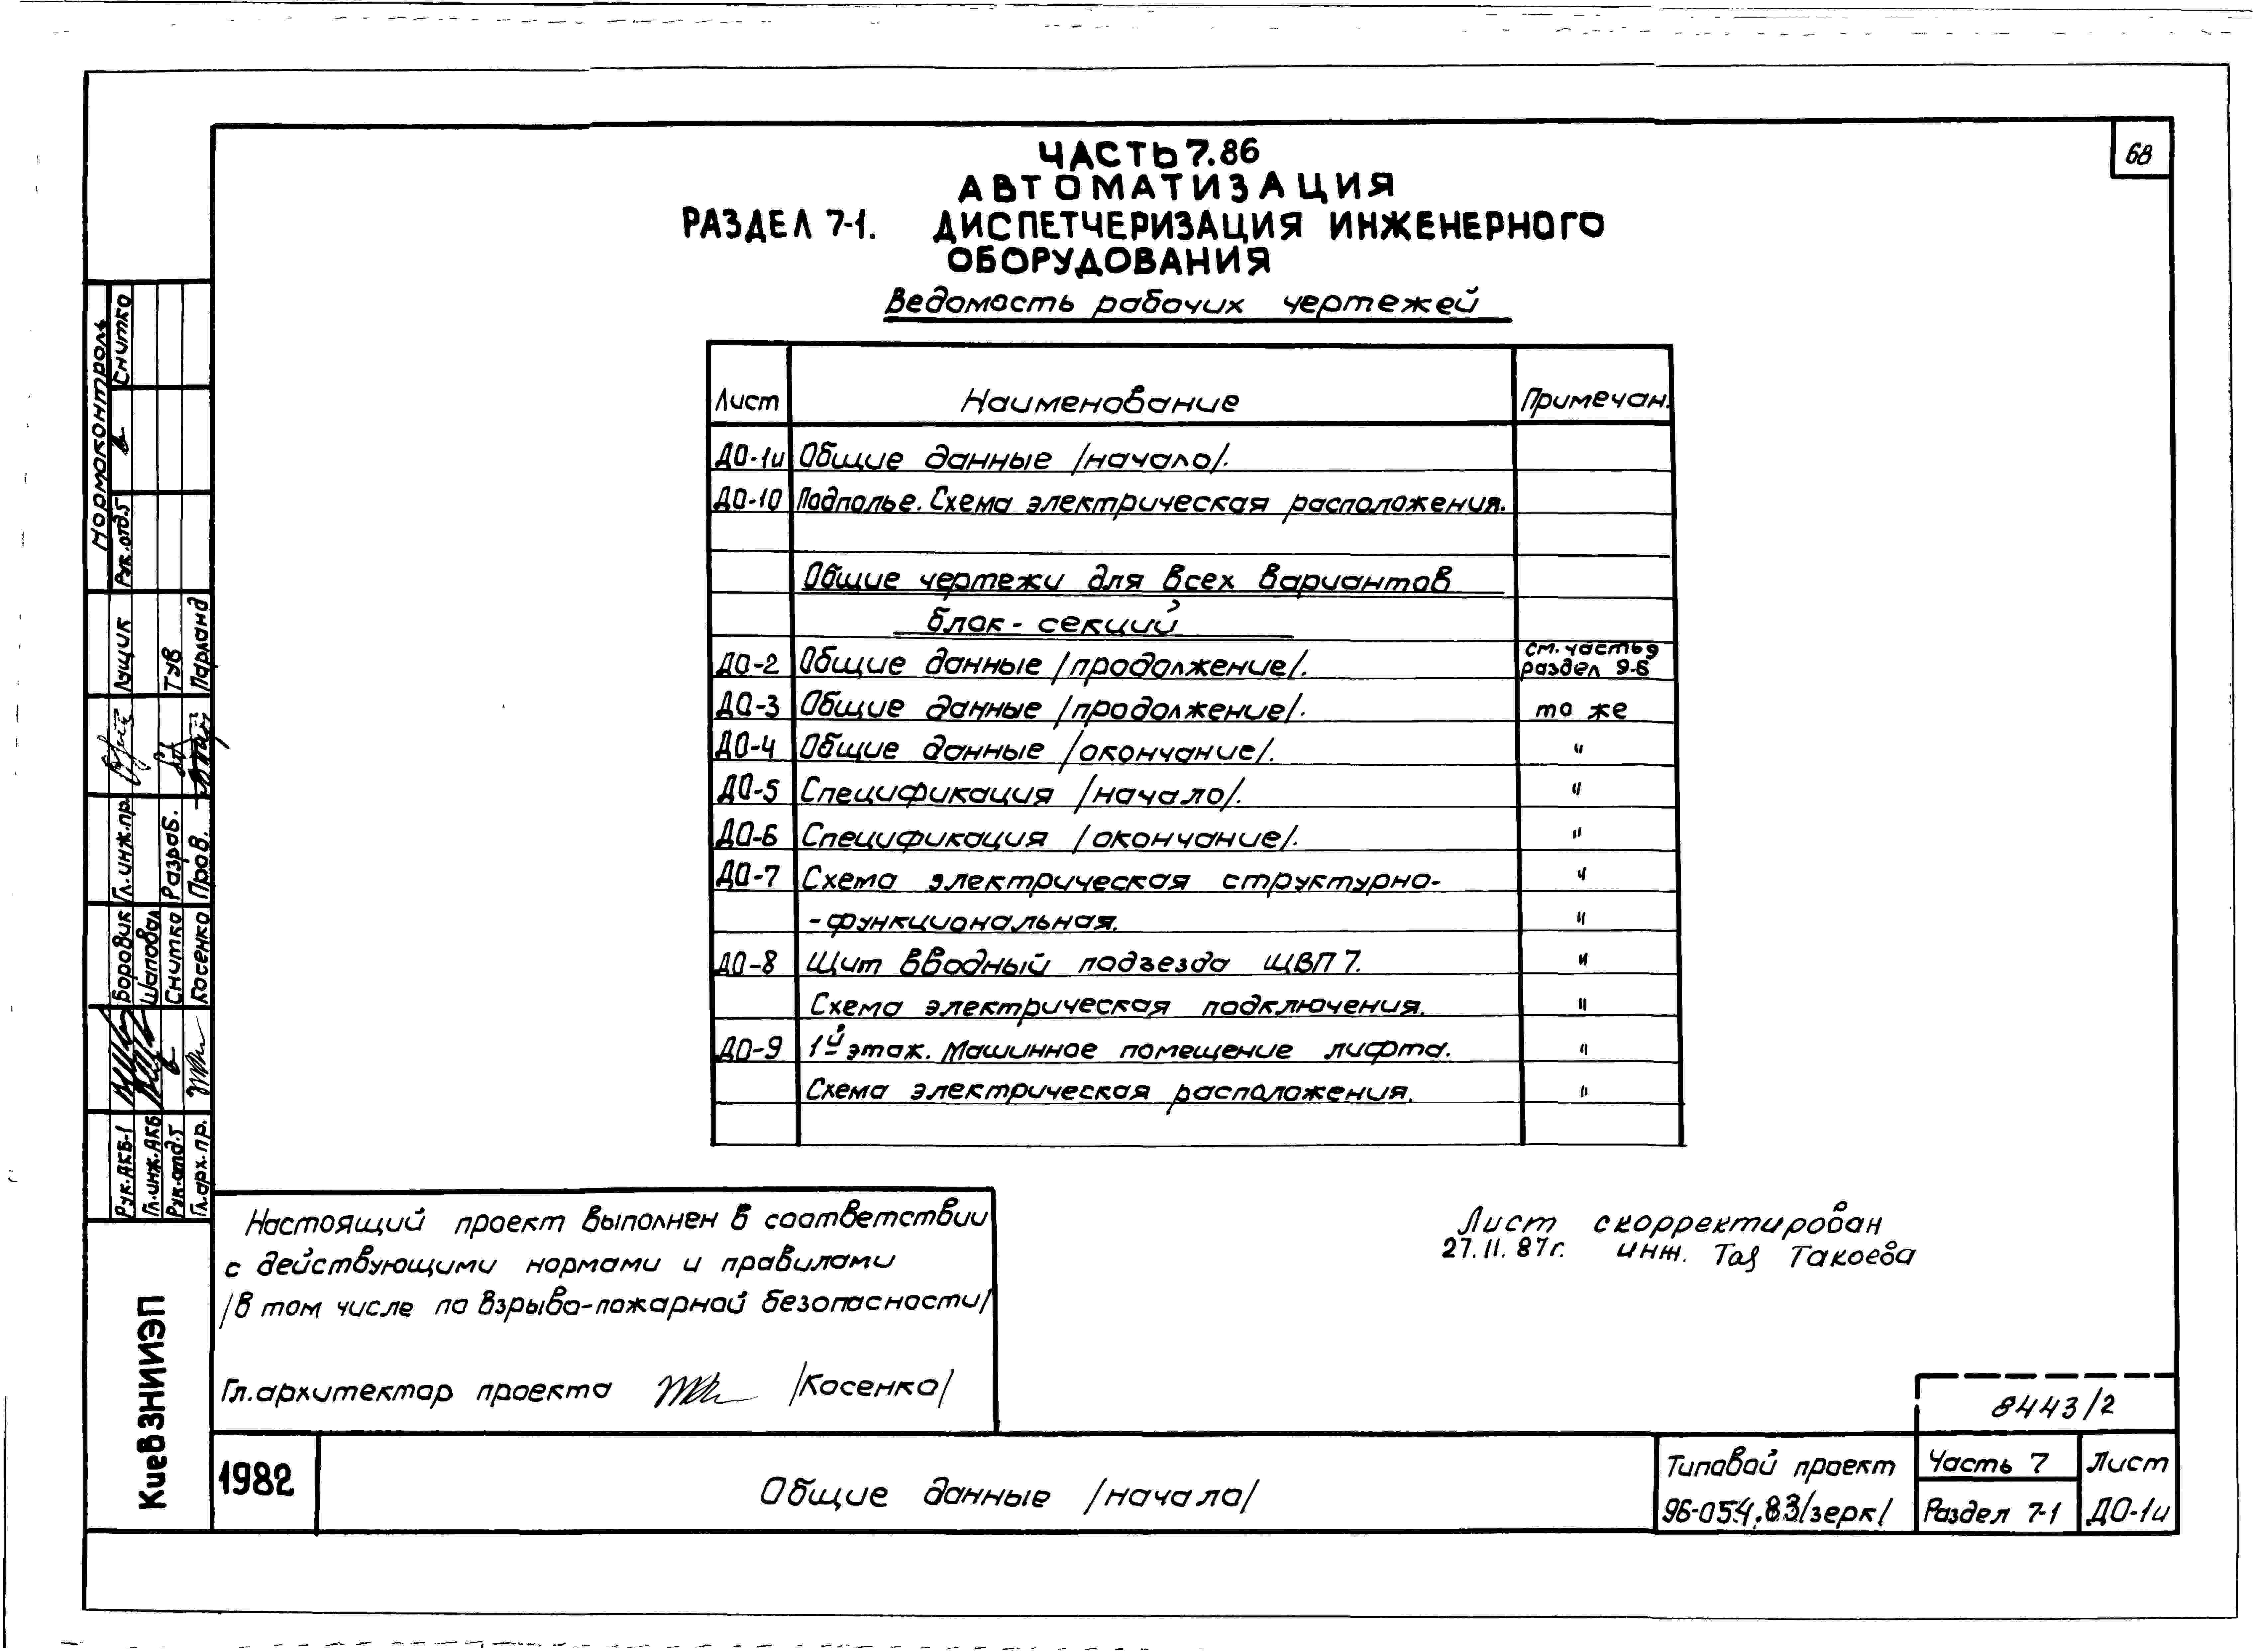 68
ЧАСТЬ 7.86
АВТОМАТИЗАЦИЯ
РАЗДЕЛ 7-1. ДИСПЕТЧЕРИЗАЦИЯ ИНЖЕНЕРНОГО
ОБОРУДОВАНИЯ
Ведомость рабочих чертежей
Лист Наименование Примечан.
ДО-1и Общие данные /начало/.
ДО-10 Подполье. Схема электрическая расположения.
Общие чертежи для всех вариантов
блок-секций
ДО-2 Общие данные /продолжение/. см. часть 9 раздел 9-6
ДО-3 Общие данные /продолжение/. то же
ДО-4 Общие данные /окончание/. "
ДО-5 Спецификация /начало/. "
ДО-6 Спецификация /окончание/. "
ДО-7 Схема электрическая структурно- "
-функциональная. "
ДО-8 Щит вводный подъезда ЩВП 7. "
Схема электрическая подключения. "
ДО-9 1й этаж. Машинное помещение лифта. "
Схема электрическая расположения. "
Настоящий проект выполнен в соответствии
с действующими нормами и правилами
/в том числе по взрыво-пожарной безопасности/
Гл.архитектор проекта /Косенко/
Лист скорректирован
27.11.87г. инж. Такоева
8443/2
1982
Общие данные /начало/
Типовой проект
96-054.83/зерк/
Часть 7
Раздел 7-1
Лист
ДО-1и
Нормоконтроль
Рук.отд.5 Снитко
Гл.инж.пр. Лущик
Разраб. Тув
Пров. Парланд
Рук.АКБ-1 Боровик
Гл.инж.АКБ Шаповал
Рук.отд.5 Снитко
Гл.арх.пр. Косенко
КиевЗНИИЭП